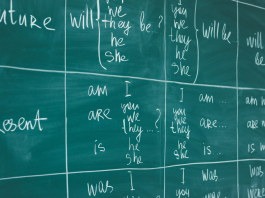 uture
will
we
they
he
she
be ?
you
we
they
he
she
will be
will
be
esent
am I
are
you
we
they
...?
is
he
she
I am
you
we
they
are...
he
she
is ..
am
are
is
was I
you
I was
you
was